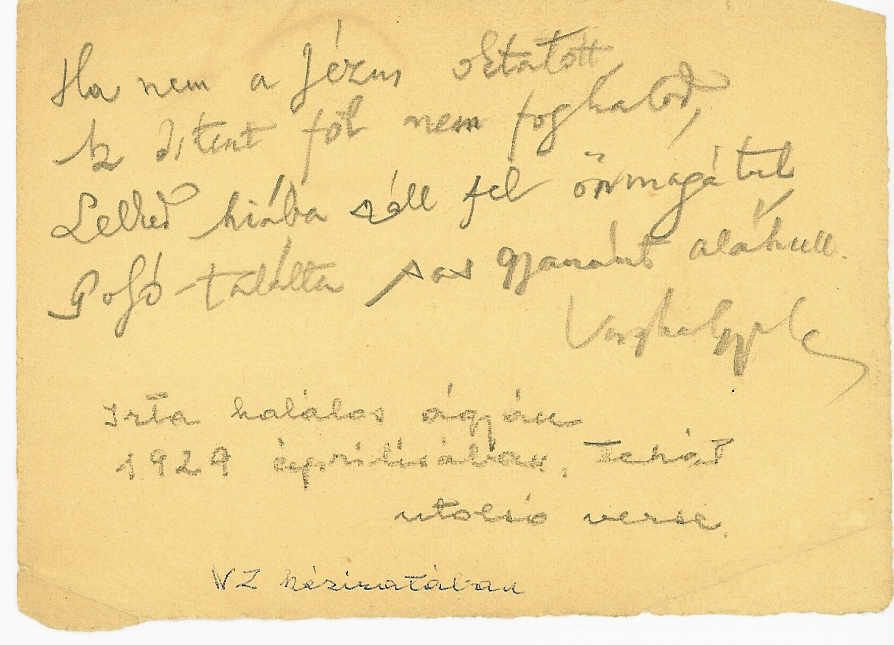 Ha nem a Jézus oktatott
Az Istent föl nem foghatod,
Lelked hiába száll fel önmagátul
Golyó-találta sas gyanánt aláhull.
Vargha Gyula
Irta halálos ágyán
1929 áprilisában, Tehát
utolsó verse.
VZ kéziratában